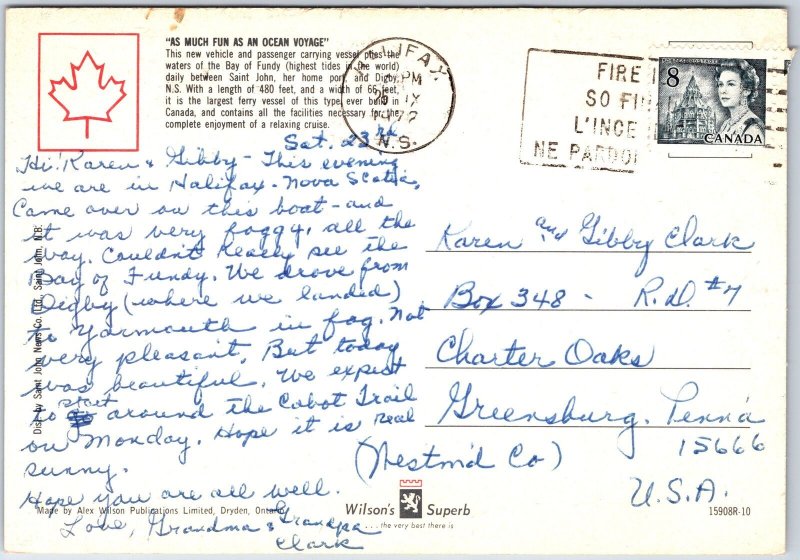 "AS MUCH FUN AS AN OCEAN VOYAGE"
This new vehicle and passenger carrying vessel plies the
waters of the Bay of Fundy (highest tides in the world)
daily between Saint John, her home port and Digby,
N.S. With a length of 480 feet, and a width of 66 feet,
it is the largest ferry vessel of this type ever built in
Canada, and contains all the facilities necessary for the
complete enjoyment of a relaxing cruise.
HALIFAX
PM
IX
N.S.
FIRE
SO FI
L'INCE
NE PARDO
8
CANADA
Sat. 23rd
Hi! Karen & Gibby - This evening
we are in Halifax - Nova Scotia,
Came over on this boat - and
it was very foggy, all the
way. Couldn't really see the
Bay of Fundy. We drove from
Digby (where we landed)
to Yarmouth in fog. Not
very pleasant. But today
was beautiful. We expect
to start around the Cabot Trail
on Monday. Hope it is real
sunny.
Hope you are all well.
Love, Grandma & Grandpa
Clark
Karen and Gibby Clark
Box 348 - R.D. #7
Charter Oaks
Greensburg, Penna
15666
(Westm'd Co)
U.S.A.
Dist. by Saint John News Co. Ltd., Saint John, N.B.
Made by Alex Wilson Publications Limited, Dryden, Ontario
Wilson's Superb
...the very best there is
15908R-10